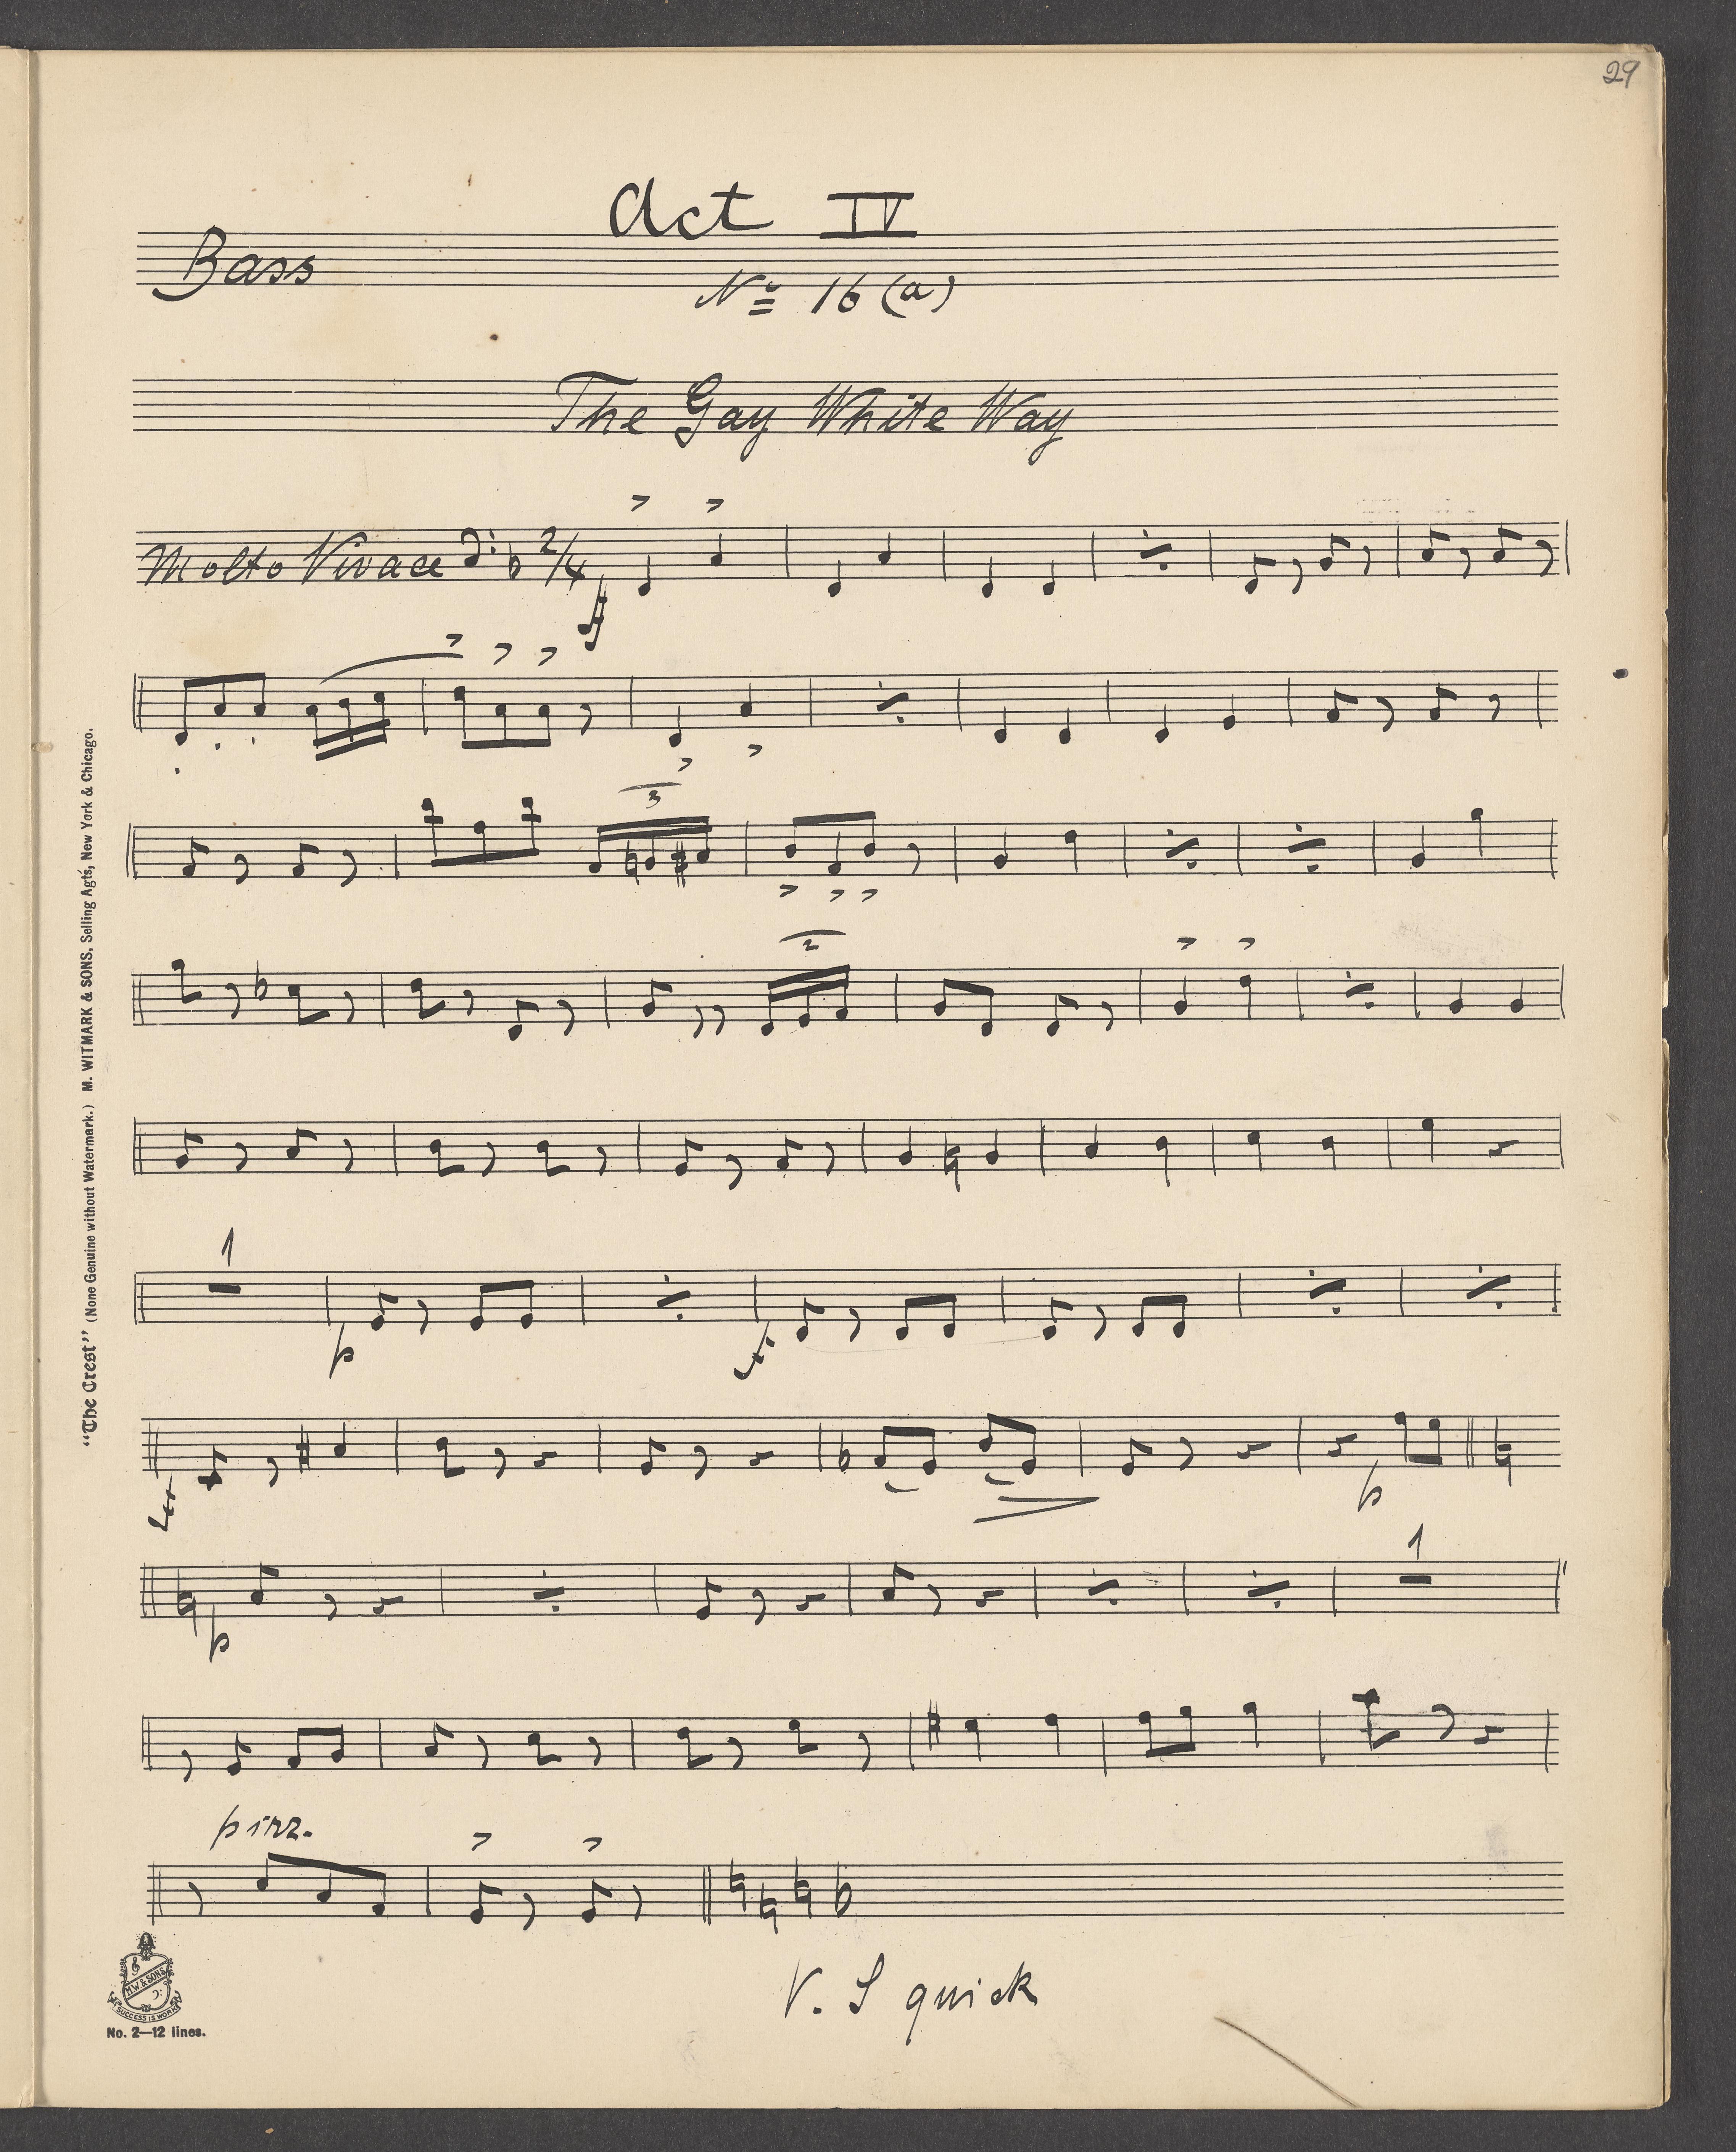 29
Act IV
Bass
No 16 (a)
The Gay White Way
Molto Vivace 2/4
f
3
2
1
p
f
p
1
p
pizz.
V. S quick
"The Crest" (None Genuine without Watermark.) M. WITMARK & SONS, Selling Agts, New York & Chicago.
M.W & SONS
SUCCESS IS WORK
No. 2—12 lines.